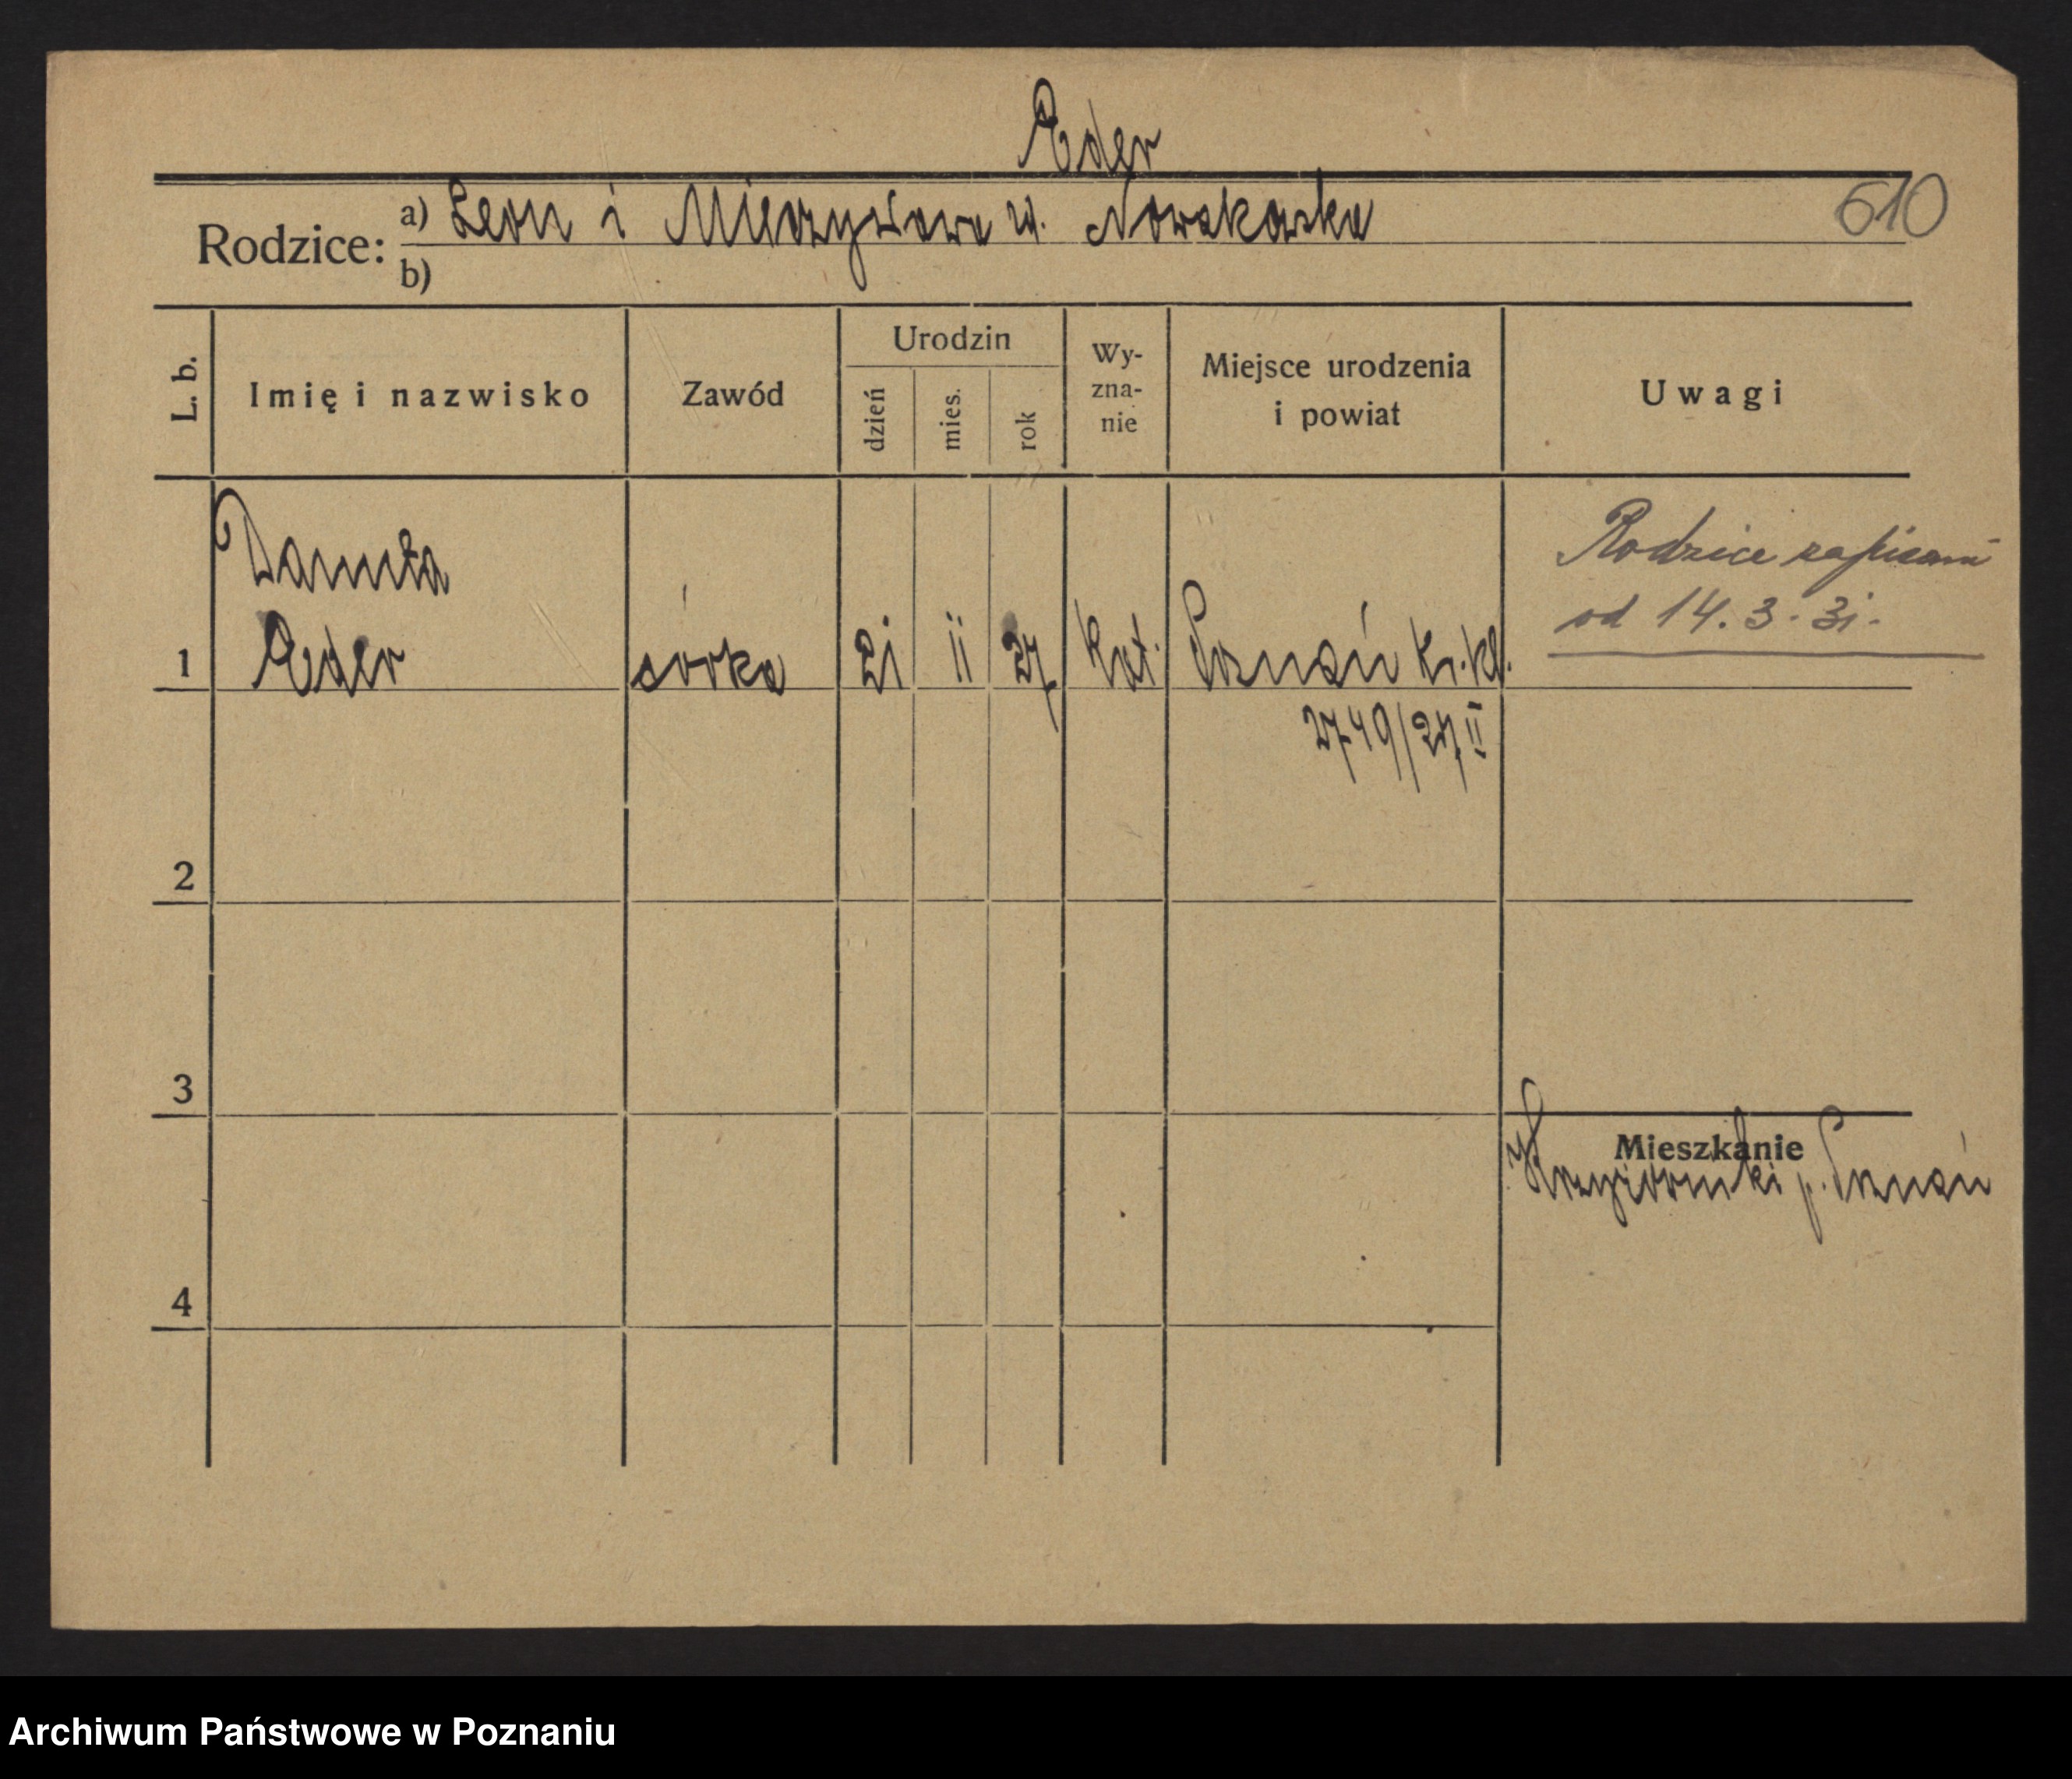 Eder
Rodzice: a) Leon i Mieczysława u. Nowakowska
610
b)
L. b.
Imię i nazwisko
Zawód
Urodzin
dzień
mies.
rok
Wy-
zna-
nie
Miejsce urodzenia
i powiat
Uwagi
Danuta
Eder
1
córka
21
11
27
kat.
Poznań
2749/27 II
Rodzice zapisani
od 14.3.31.
2
3
4
Mieszkanie
p. Poznań
Archiwum Państwowe w Poznaniu